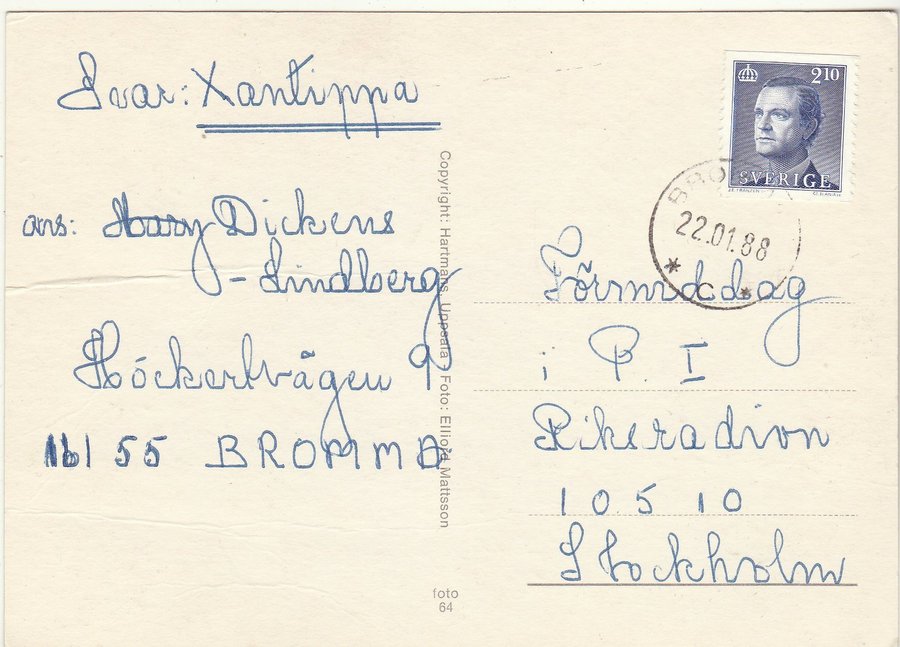 Svar: Xantippa
ans: Dickens
- Lindberg
Höckertvägen 9
161 55 BROMMA
Copyright: Hartmans, Uppsala Foto: Elliord Mattsson
foto
64
2.10
SVERIGE
22.01.88
Förmiddag
i P. I
Riksradion
105 10
Stockholm